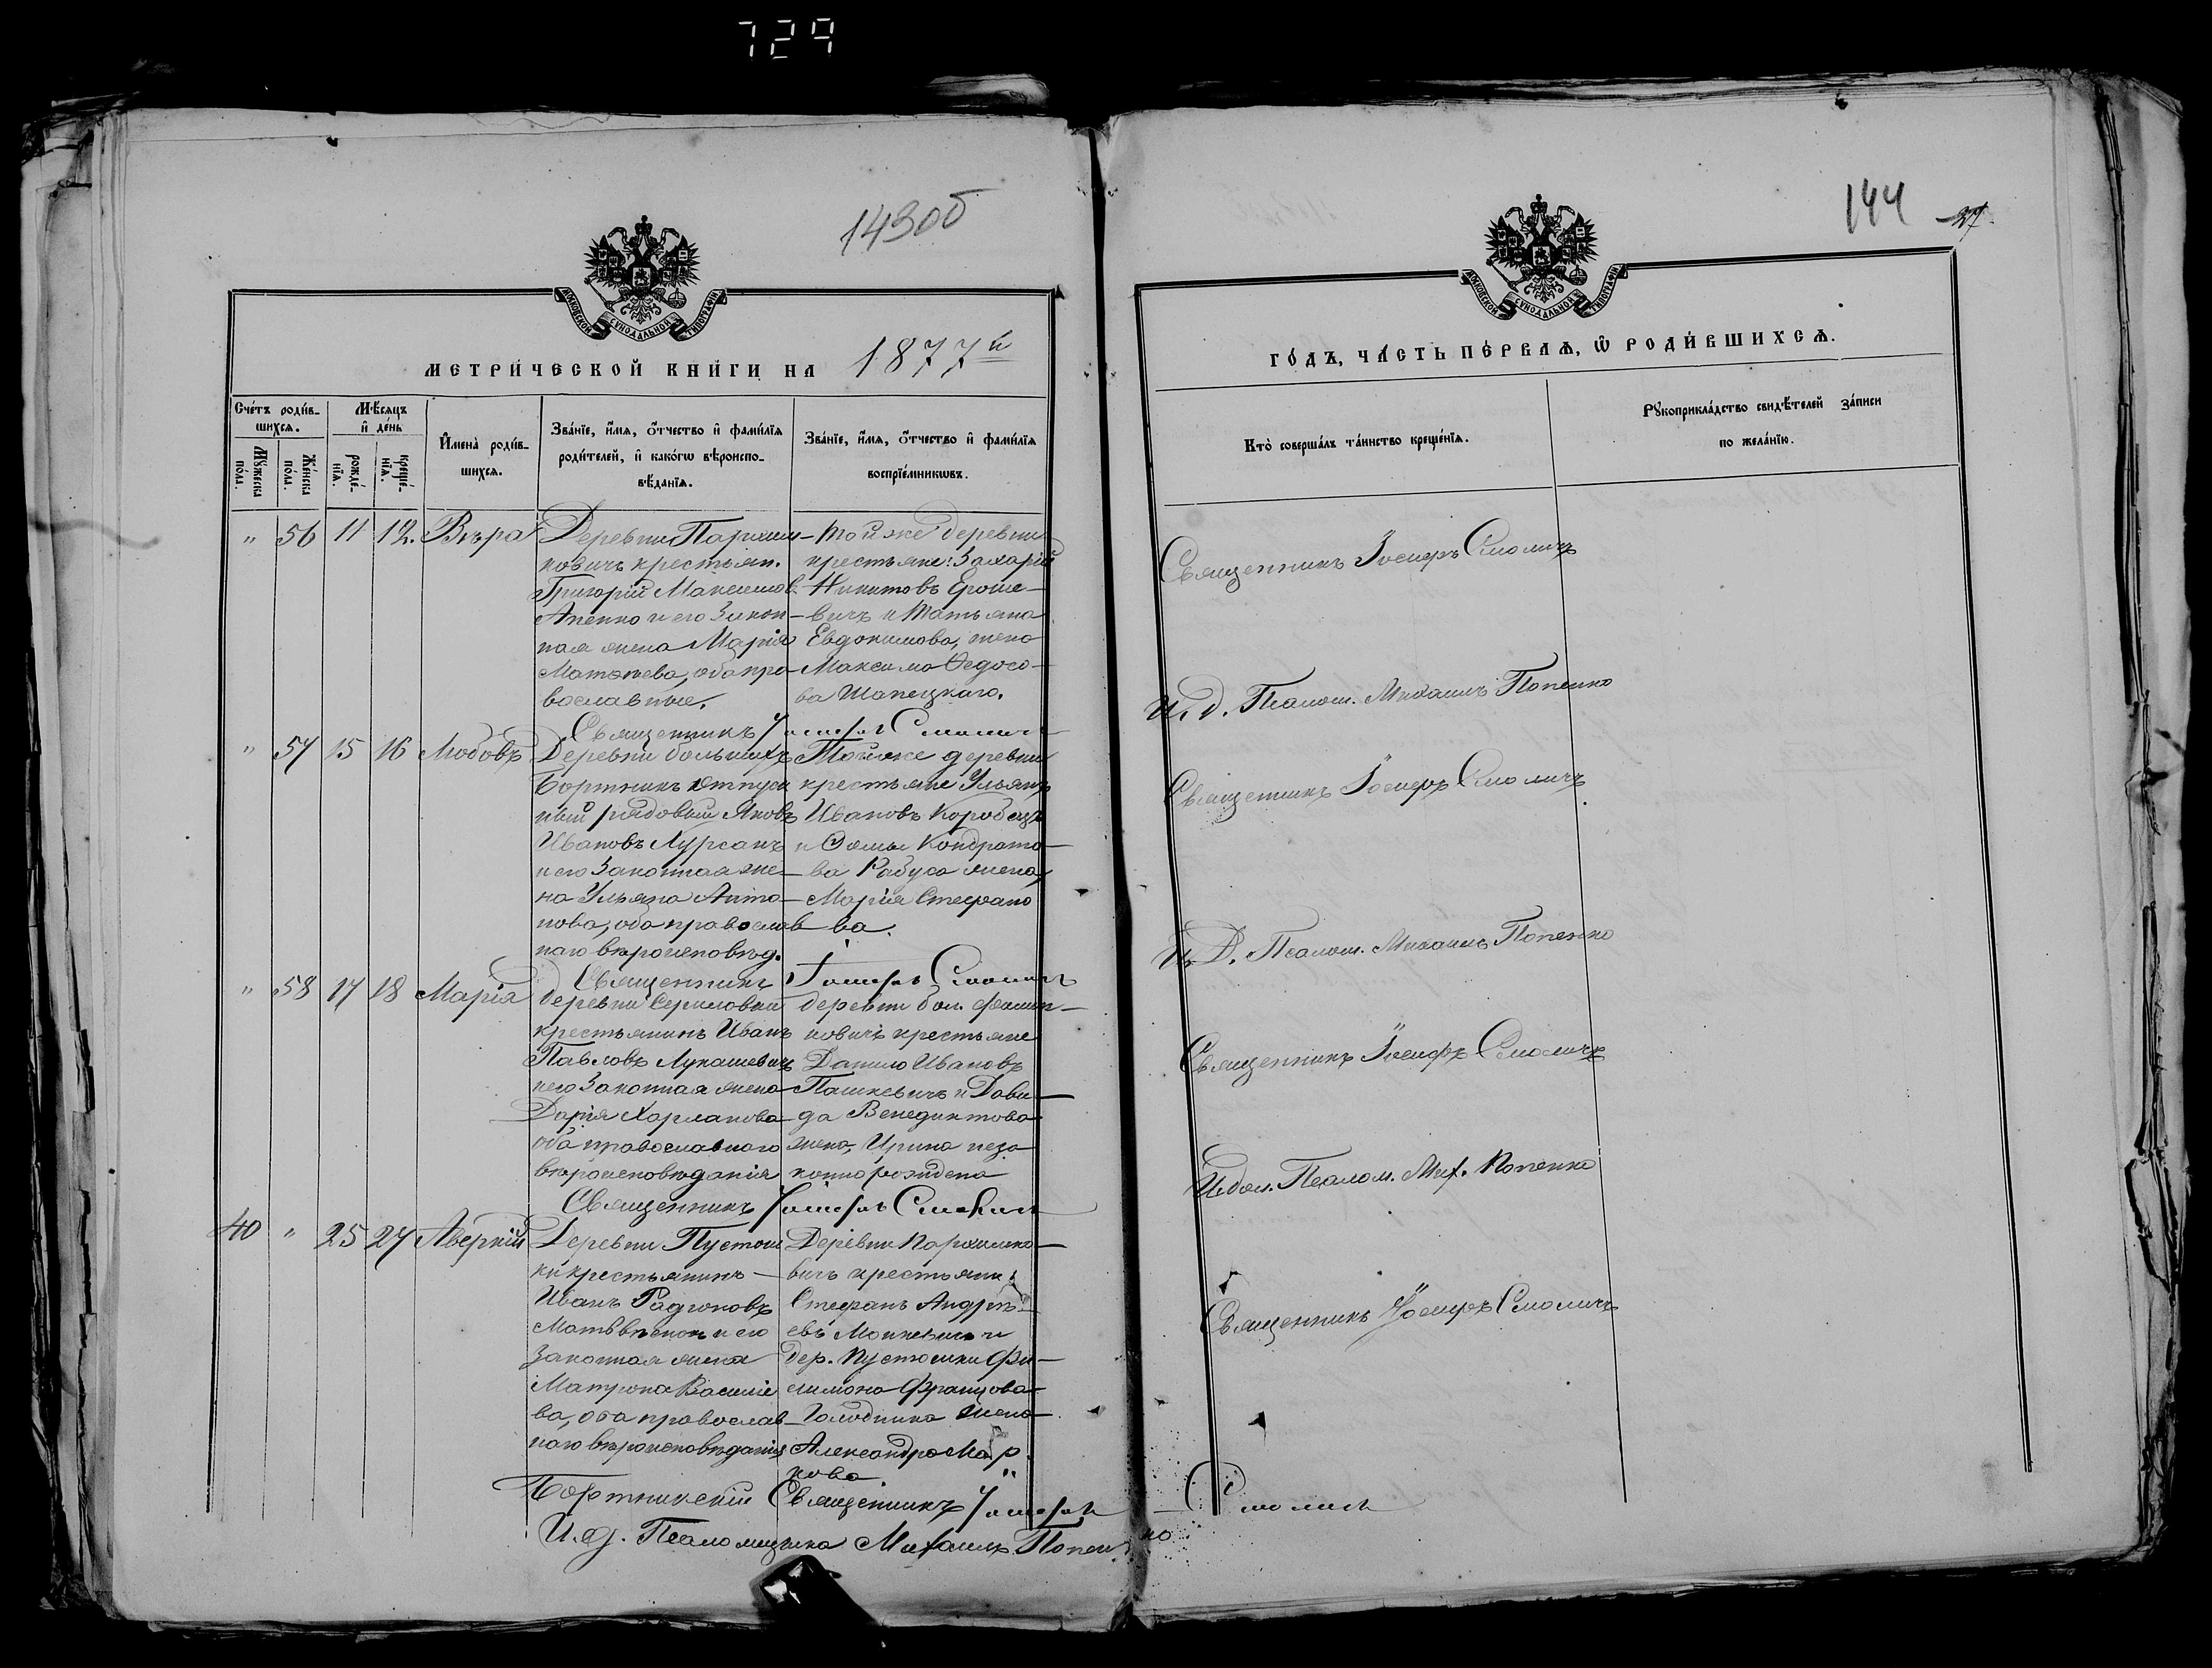 729
143об
144 27
МОСКОВСКОЙ СѴНОДАЛЬНОЙ ТИПОГРАФІИ
МОСКОВСКОЙ СѴНОДАЛЬНОЙ ТИПОГРАФІИ
МЕТРИ́ЧЕСКОЙ КНИ́ГИ НА 1877й
ГО́ДЪ, ЧА́СТЬ ПЕ́РВАѦ, Ѿ РОДИ́ВШИХСѦ.
Сче́тъ роди́в-
шихсѧ.
Мꙋ́жеска по́ла.
Же́нска по́ла.
Мѣ́сяцъ и҆ де́нь
рожде́-нїѧ.
креще́-нїѧ.
И҆мена̀ роди́в-
шихсѧ.
Зва́нїе, и҆́мѧ, ѻ҆́тчество и҆ фами́лїѧ
роди́телей, и҆ како́гѡ вѣроиспо-
вѣ́данїѧ.
Зва́нїе, и҆́мѧ, ѻ҆́тчество и҆ фами́лїѧ
воспрїе́мникѡвъ.
Кто̀ соверша́лъ та́инство креще́нїѧ.
Рꙋкоприкла́дство свидѣ́телей за́писи
по жела́нїю.
" 56 11 12. Вѣра
Деревни Пархим-
ковичъ крестьян.
Григорій Максимов
Апенко и его закон-
ная жена Марія
Матѳѣева, оба пра-
вославные.
Той же деревни
крестьяне: Захарій
Никитовъ Ероше-
вичъ и Татьяна
Евдокимова, жена
Максима Ѳедосо-
ва Шапецкаго.
Священникъ Іосифъ Смоличъ
И. д. Псалом. Михаилъ Попенко
Священникъ Іосифъ Смоличъ
" 57 15 16 Любовь
Деревни Большихъ
Бортникъ отпуск
ный рядовый Яковъ
Ивановъ Курсанъ
и его законная же-
на Ульяна Анто-
нова, оба православ
наго вѣроисповѣд.
Той же деревни
крестьяне Ульянъ
Ивановъ Коробецъ
и Сомы Кондрато-
ва Рабуса жена,
Марія Стефано
ва.
Священникъ Іосифъ Смоличъ
И. Д. Псалом. Михаилъ Попенко
Священникъ Іосифъ Смоличъ
" 58 17 18 Марія
деревни
крестьянинъ Иванъ
Павловъ Лукашевичъ
и его законная жена
Дарія Харланова
оба православнаго
вѣроисповѣданія
деревни Бол. Филип-
повичъ крестьяне
Данило Ивановъ
Пашкевичъ и Дави-
да Венедиктова
жена, Ирина неза
конно рождена
Священникъ Іосифъ Смоличъ
Псалом. Мих. Попенко
Священникъ Іосифъ Смоличъ
40 " 25 27 Аверкій
Деревни Пустош
ки крестьянинъ -
Иванъ Радіоновъ
Матвѣенокъ и его
законная жена
Матрона Василіе
ва, оба православ-
наго вѣроисповѣданія
Деревни Пархимко-
вичъ крестьяни:
Стефанъ Андрѣ-
евъ Мошкевичъ и
дер. Пустошки Фи-
лимона Францова
Голодника жена
Александра Мар
кова. "
Священникъ Іосифъ Смоличъ
Бортникскій Священникъ Іосифъ Смоличъ
И. д. Псаломщика Михаилъ Попенко